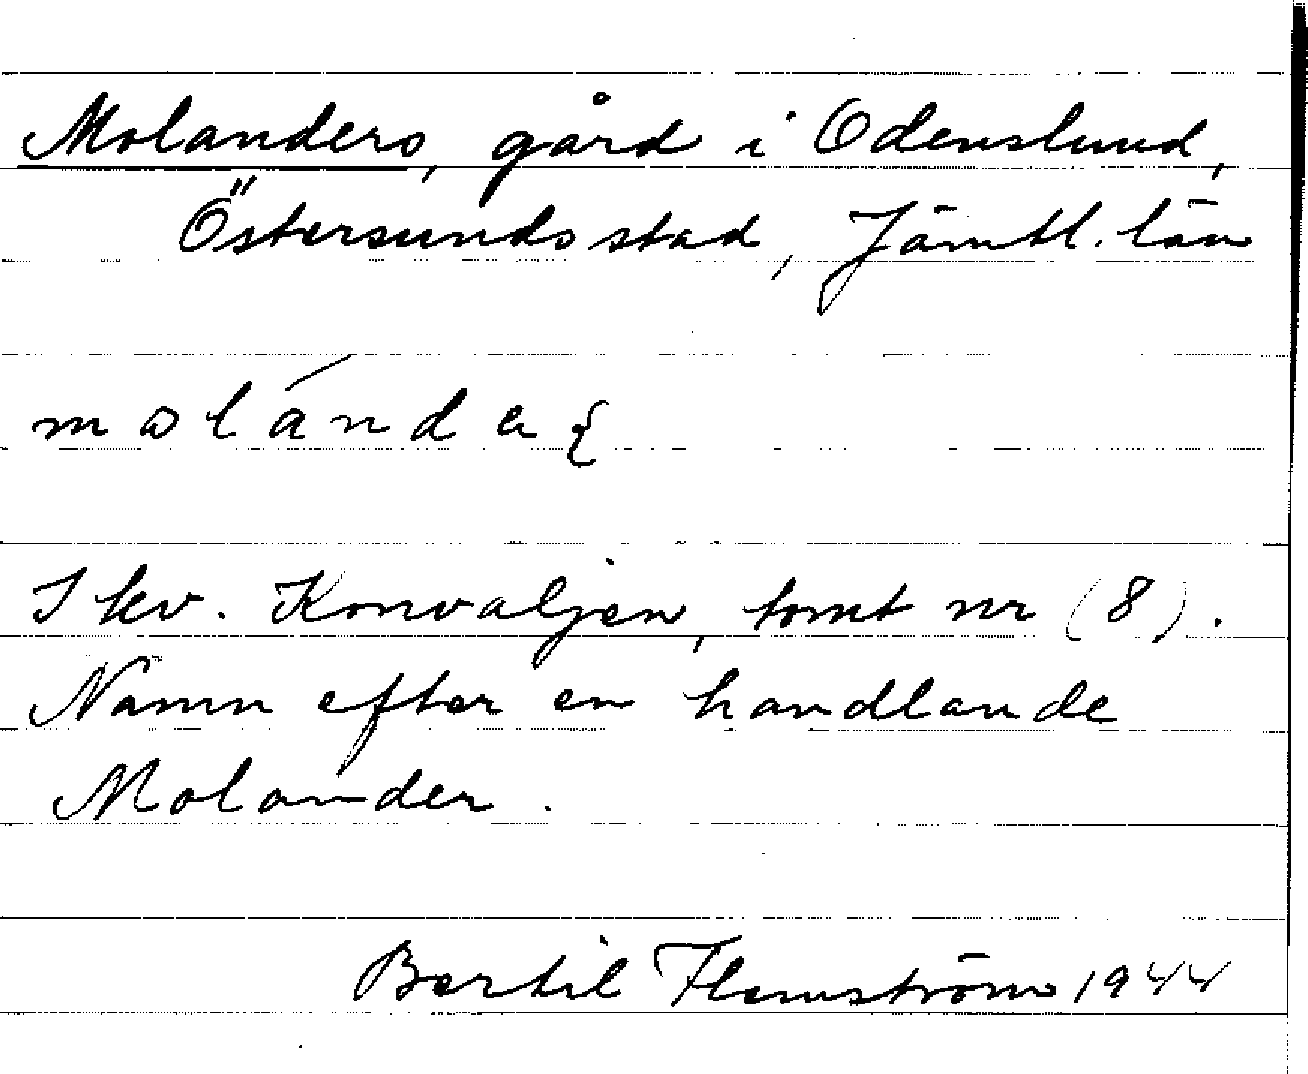 Molanders, gård i Odenslund,
Östersunds stad, Jämtl. län
molánde
I kv. Konvaljen, tomt nr (8).
Namn efter en handlande
Molander.
Bertil Flemström 1944